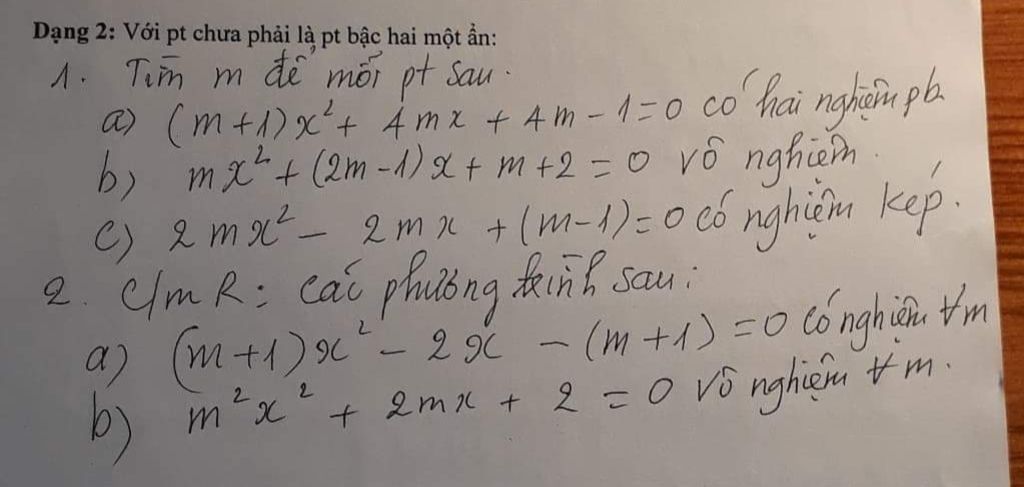 Dạng 2: Với pt chưa phải là pt bậc hai một ẩn:
1. Tìm m để mỗi pt sau.
a) (m+1)x² + 4mx + 4m - 1 = 0 có hai nghiệm pb.
b) mx² + (2m-1)x + m + 2 = 0 vô nghiệm.
c) 2mx² - 2mx + (m-1) = 0 có nghiệm kép.
2. C/m R: các phương trình sau:
a) (m+1)x² - 2x - (m+1) = 0 có nghiệm ∀m
b) m²x² + 2mx + 2 = 0 vô nghiệm ∀m.